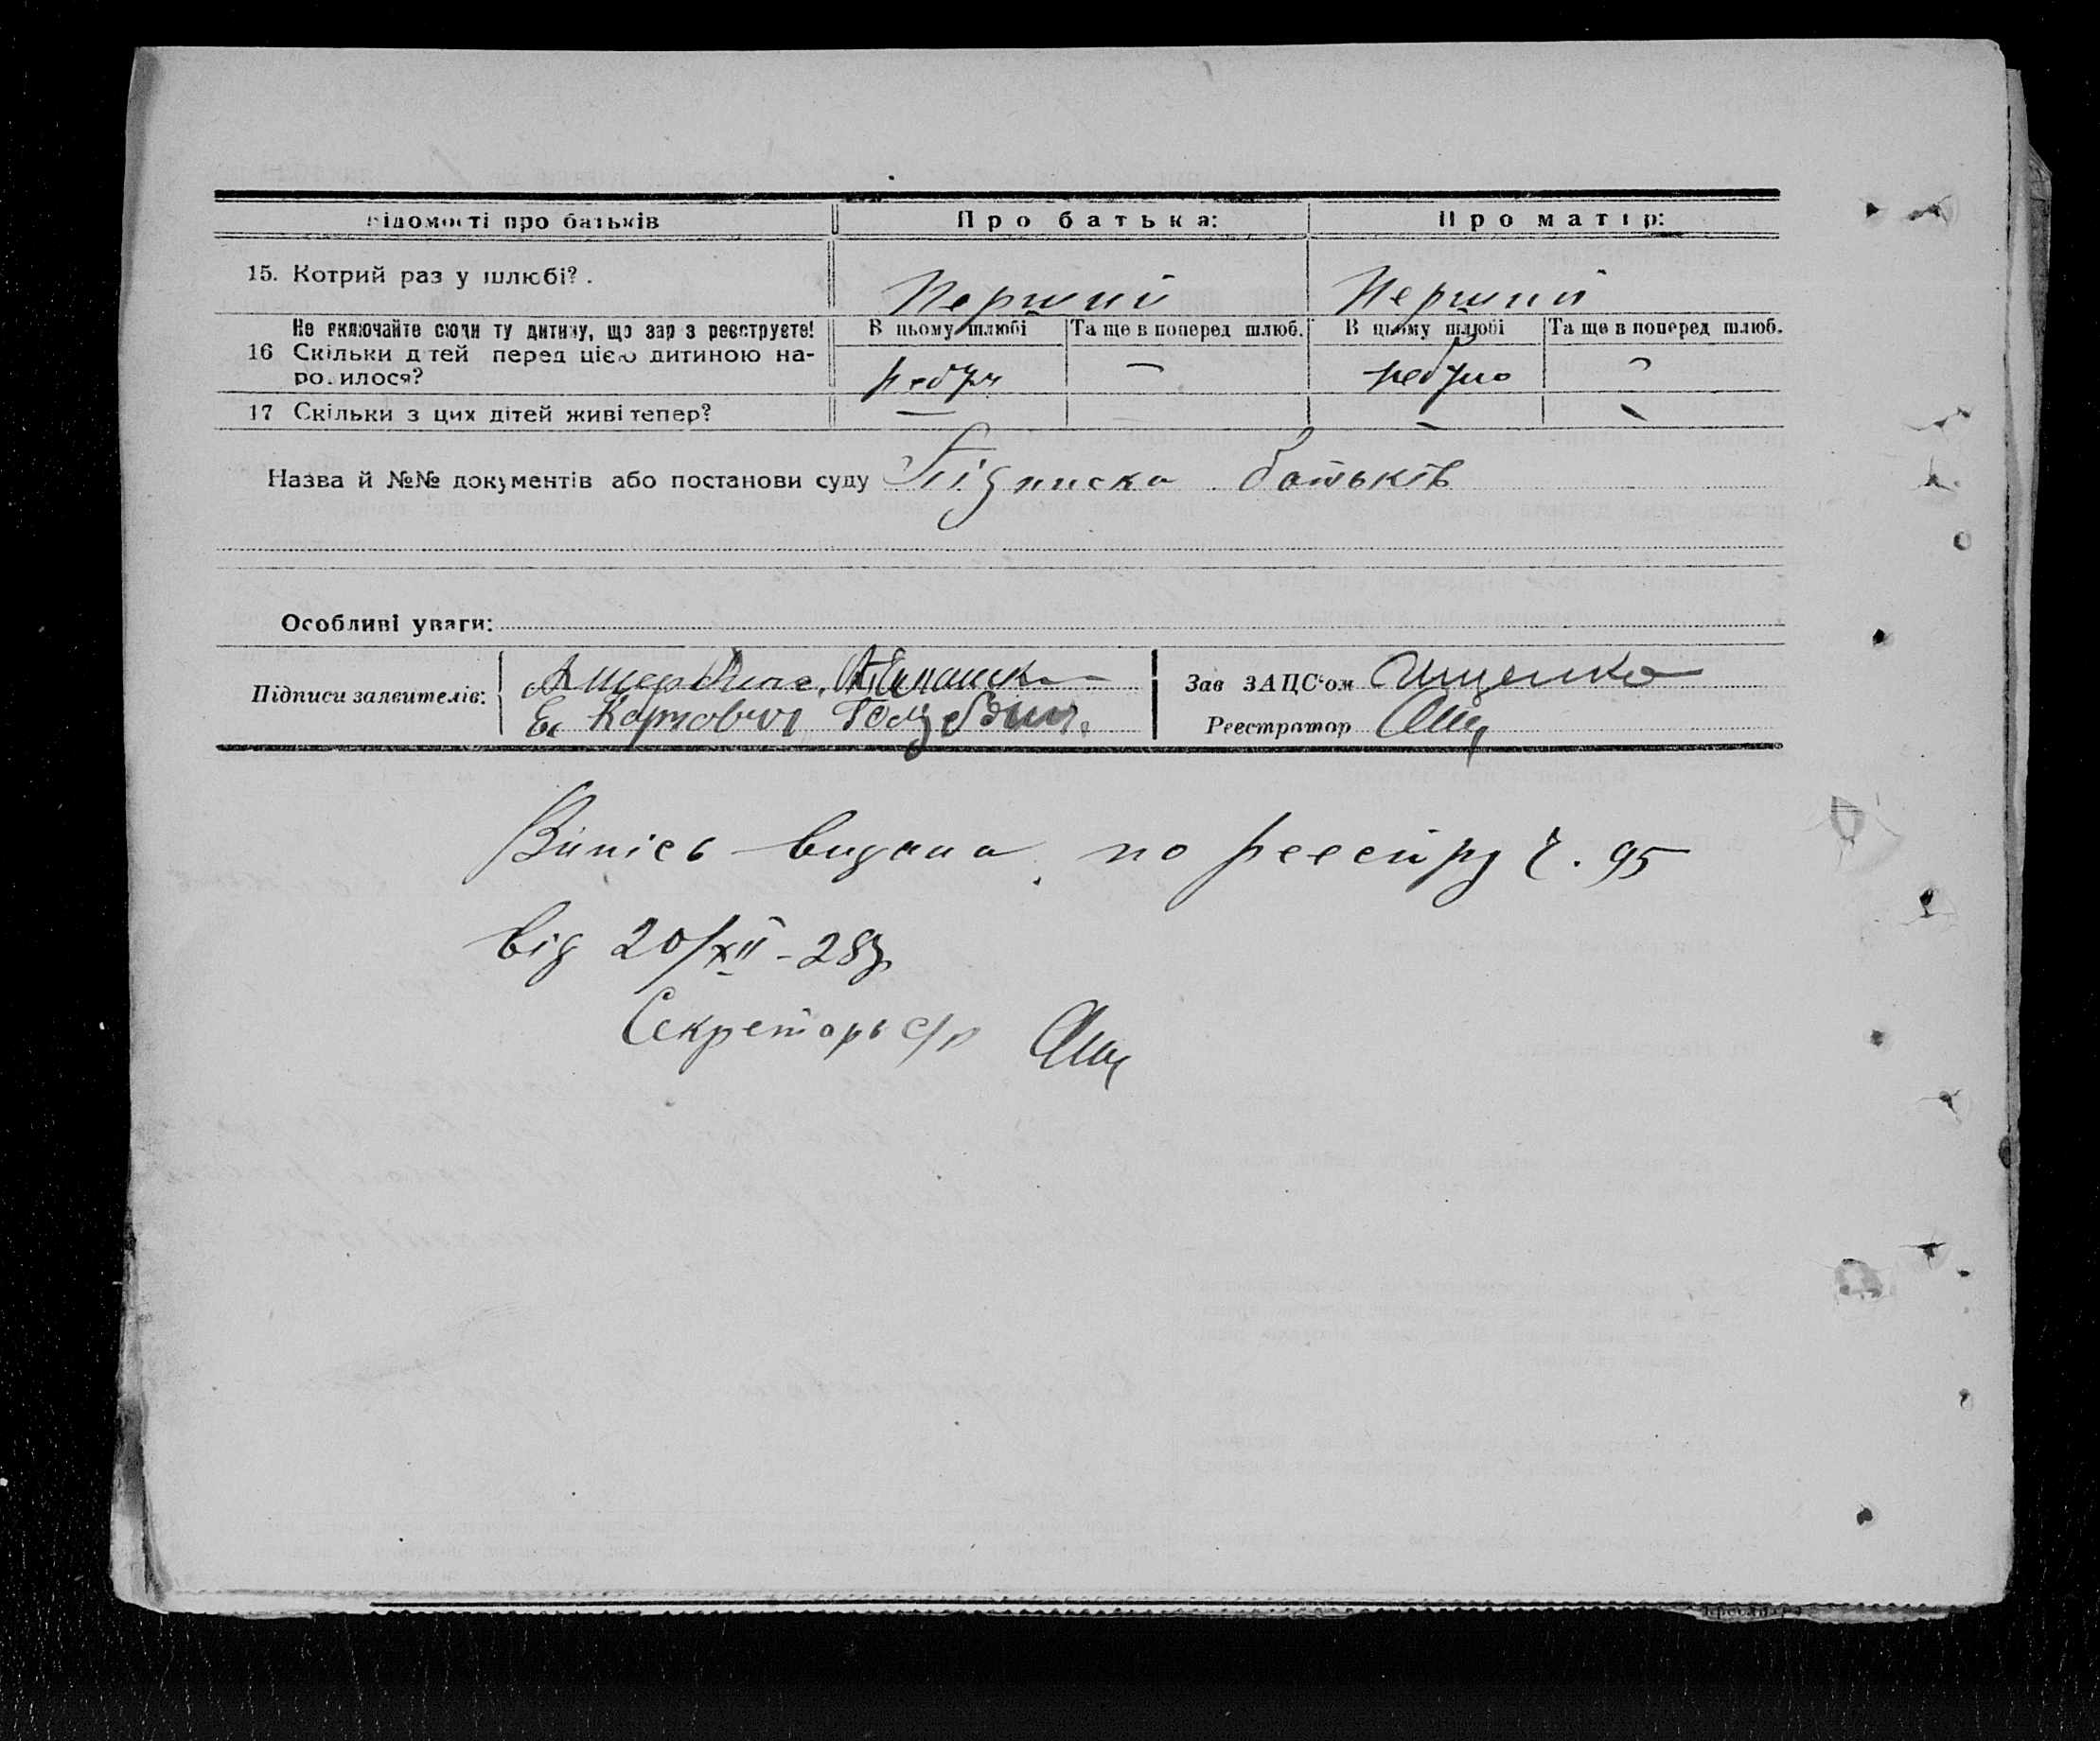 ідомості про батьків Про батька: Про матір:
15. Котрий раз у шлюбі? . Перший Перший
Не включайте сюди ту дитину, що зар з реєструєте! В цьому шлюбі Та ще в поперед шлюб. В цьому шлюбі Та ще в поперед шлюб.
16 Скільки д тей перед цією дитиною на-
ро. илося? — -
17 Скільки з цих дітей живі тепер? — — - -
Назва й №№ документів або постанови суду Підписка батьків
Особливі уваги:
Підписи заявителів:
Зав ЗАЦС‘ом Ищенко
Реєстратор
Випісь видана по реєстру Ч. 95
від 20/XII - 28р
Секретарь с/р